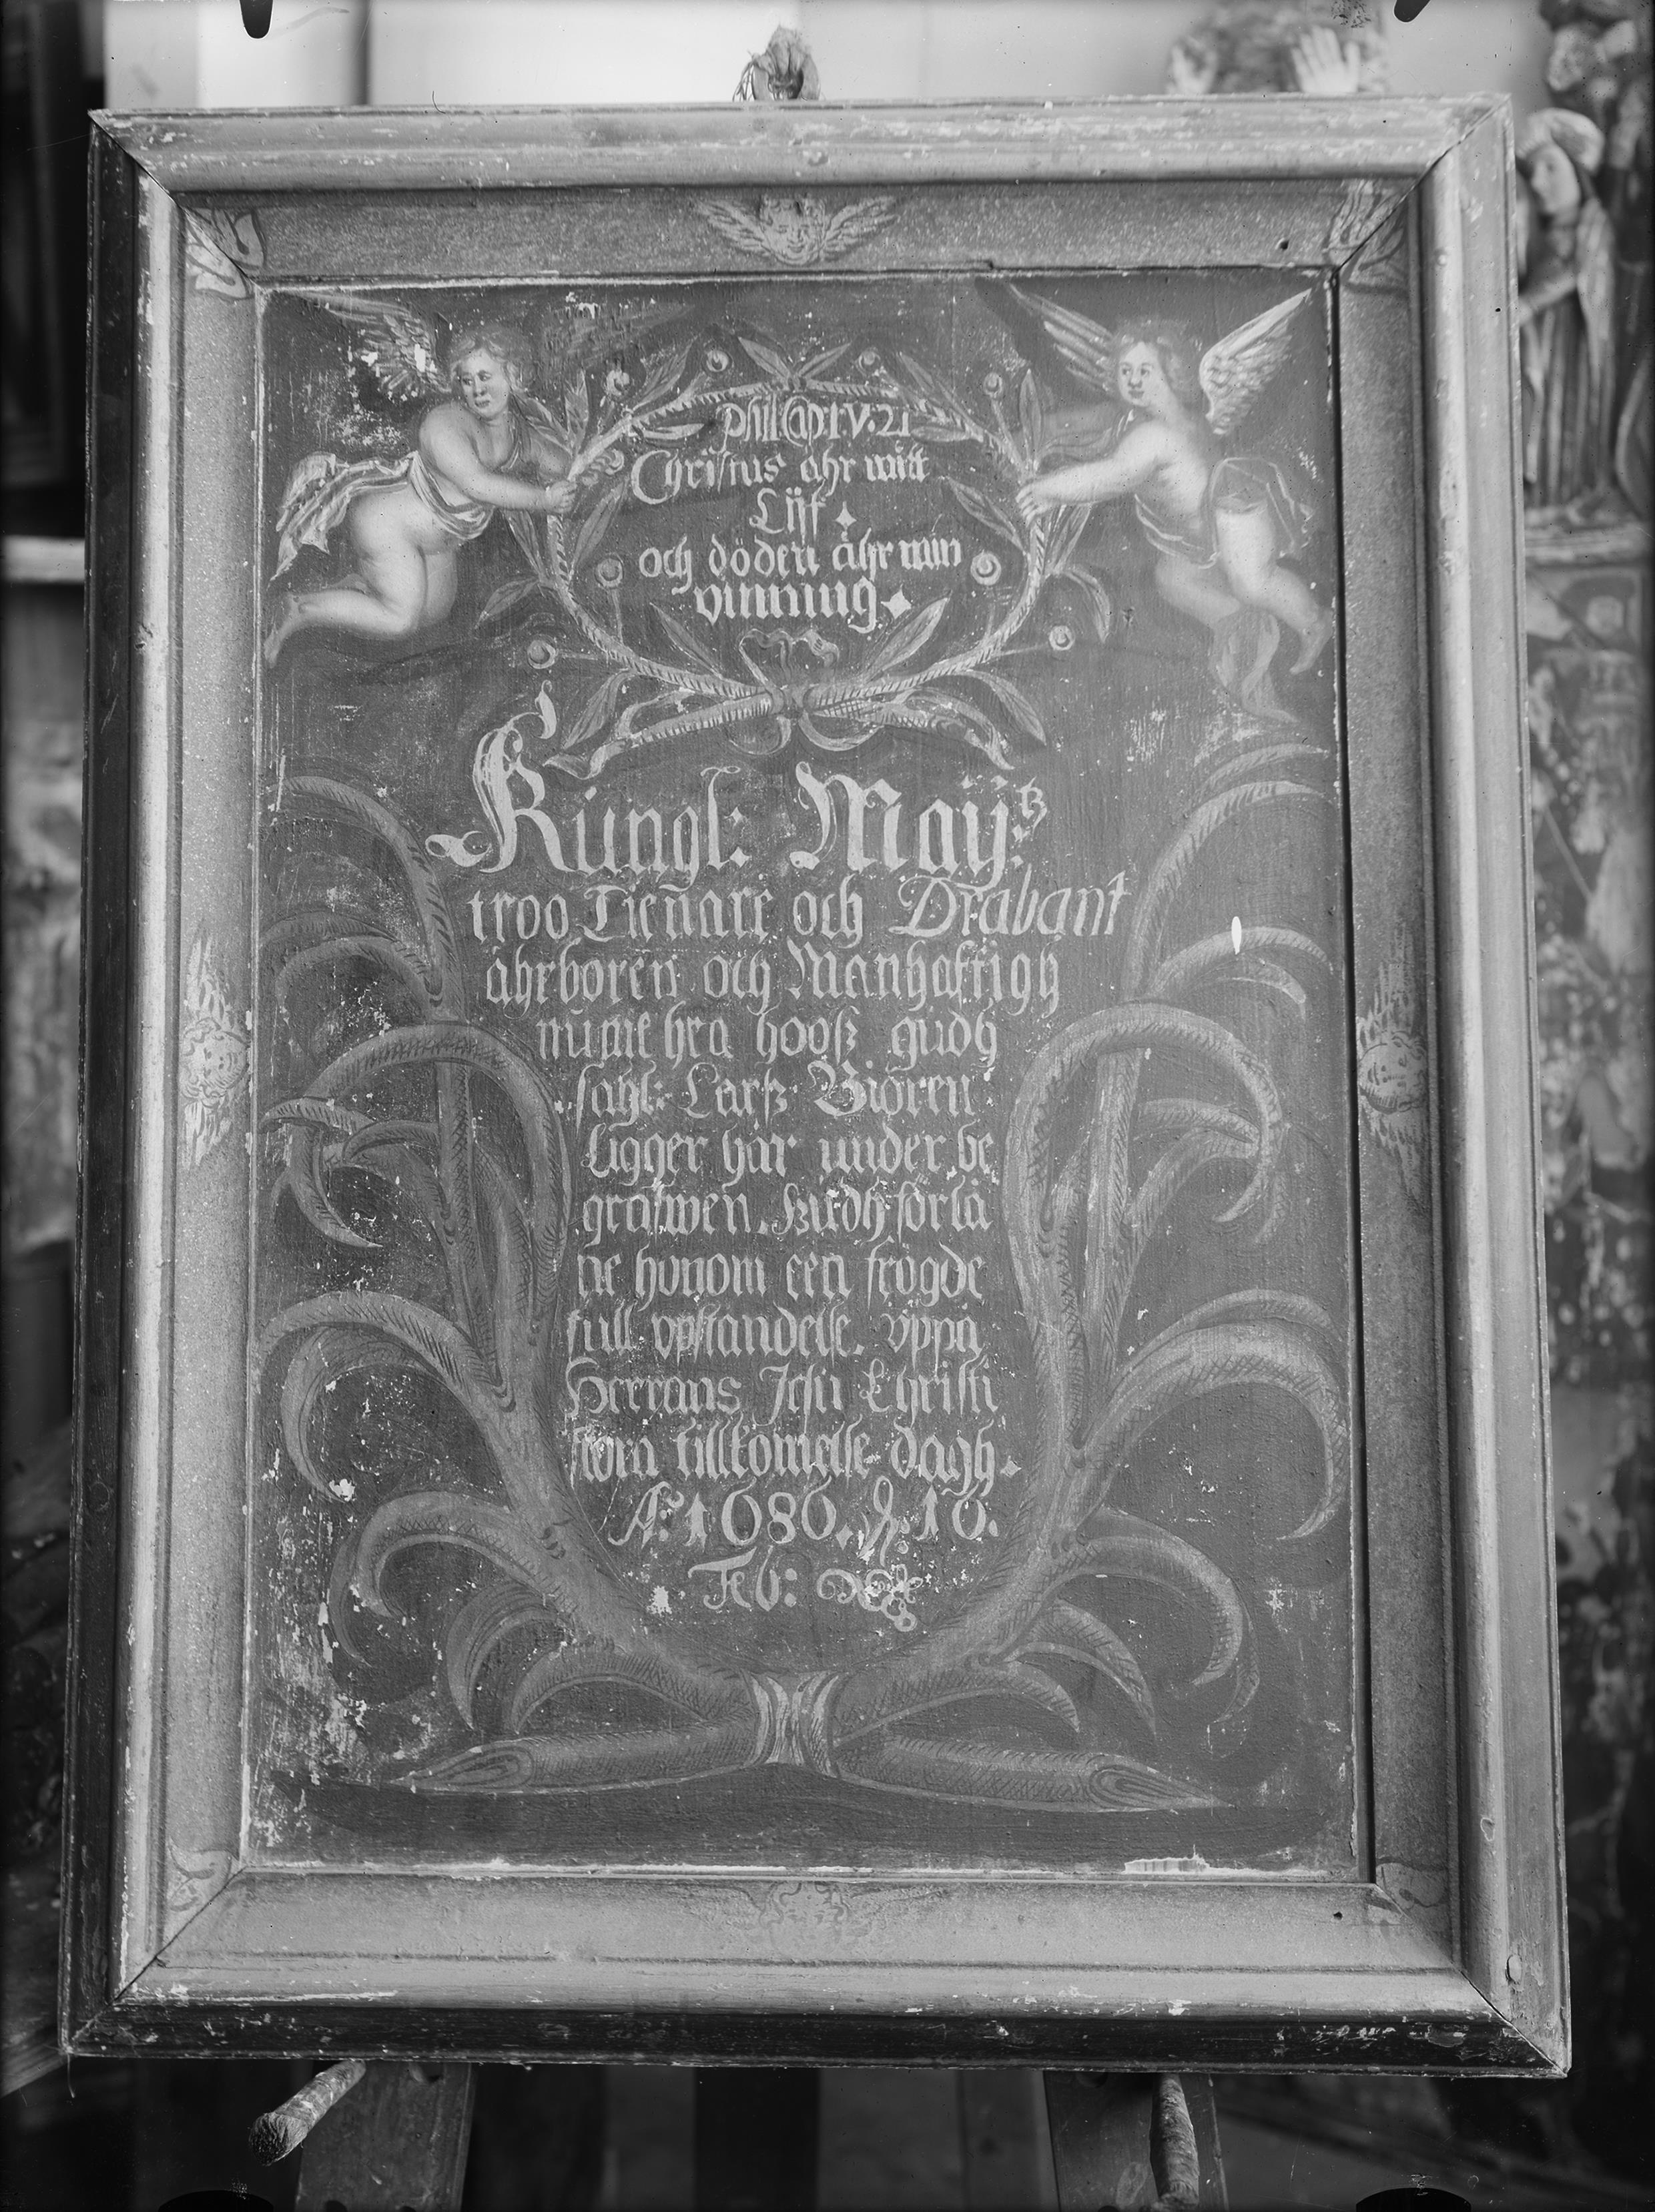 Phil Cap I. V. 21
Christus ähr mitt
Lijf
och döden ähr min
vinning
Kungl: Maÿ:tz
troo Tienare och Drabant
ährboren och Manhafftigh
hooß gudh
Sahl: Larß Biören
ligger här under be
grafwen. Gudh förlä
ne honom een frögde
full vpståndelse. vppå
Herrans Jesu Christi
stora tillkomelse dagh.
A:o 1686. d. 16.
Feb: